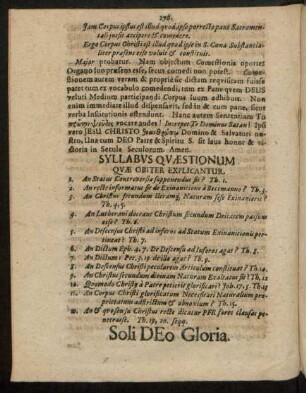 278.
Jam Corpus ipsius est illud quod ipse porrecto pane Sacramen-
tali jussit accipere & comedere.
Ergo Corpus Christi est illud quod ipse in S. Cœna Substantia-
liter præsens esse voluit & constituit.
Major probatur. Nam objectum Comestionis oportet
Organo suo præsens esse, secus comedi non potest. Come-
stionem autem veram & propriè sic dictam requisitam fuisse
patet tum ex vocabulo comedendi, tum ex Pane quem DEUS
veluti Medium participandi Corpus suum adhibuit. Non
enim immediatè illud dispensavit, sed in & cum pane, sicut
verba Institutionis ostendunt. Hanc autem Sententiam
vocare audes? Increpet Te Dominus Satan! Ipsi
vero JESU CHRISTO Domino & Salvatori no-
stro, Una cum DEO Patre & Spiritu S. sit laus honor & vi-
ctoria in Secula Seculorum. Amen.
SYLLABUS QUÆSTIONUM
QUÆ OBITER EXPLICANTUR.
1. An Status Controversiæ supponendus sit? Th. 1.
2. An rectè informatus sit de Exinanitione à Beckmanno? Th. 3.
3. An Christus secundum utramq; Naturam sese Exinanierit?
Th. 4. 5.
4. An Lutherani doceant Christum secundum Deitatem passum
esse? Th. 6.
5. An Descensus Christi ad inferos ad Statum Exinanitionis per-
tineat? Th. 7.
6. An Dictum Eph. 4, 7. De Descensu ad Inferos agat? Th. 8.
7. An Dictum 1 Pet. 3. 19. de illo agat? Th. 9.
8. An Descensus Christi peculiarem Articulum constituat? Th. 10.
9. An Christus secundum divinam Naturam Exaltatus sit? Th. 12.
10. Quomodo Christus à Patre petierit glorificari? Joh. 17. 5. Th. 13
11. An Corpus Christi glorificatum Necessitati Naturalium pro-
prietatum adstrictum & obnoxium? Th. 15.
12. An & quo sensu Christus rectè dicatur PER fores clausas pe-
netrasse. Th. 19, 20. seqq.
Soli DEo Gloria.